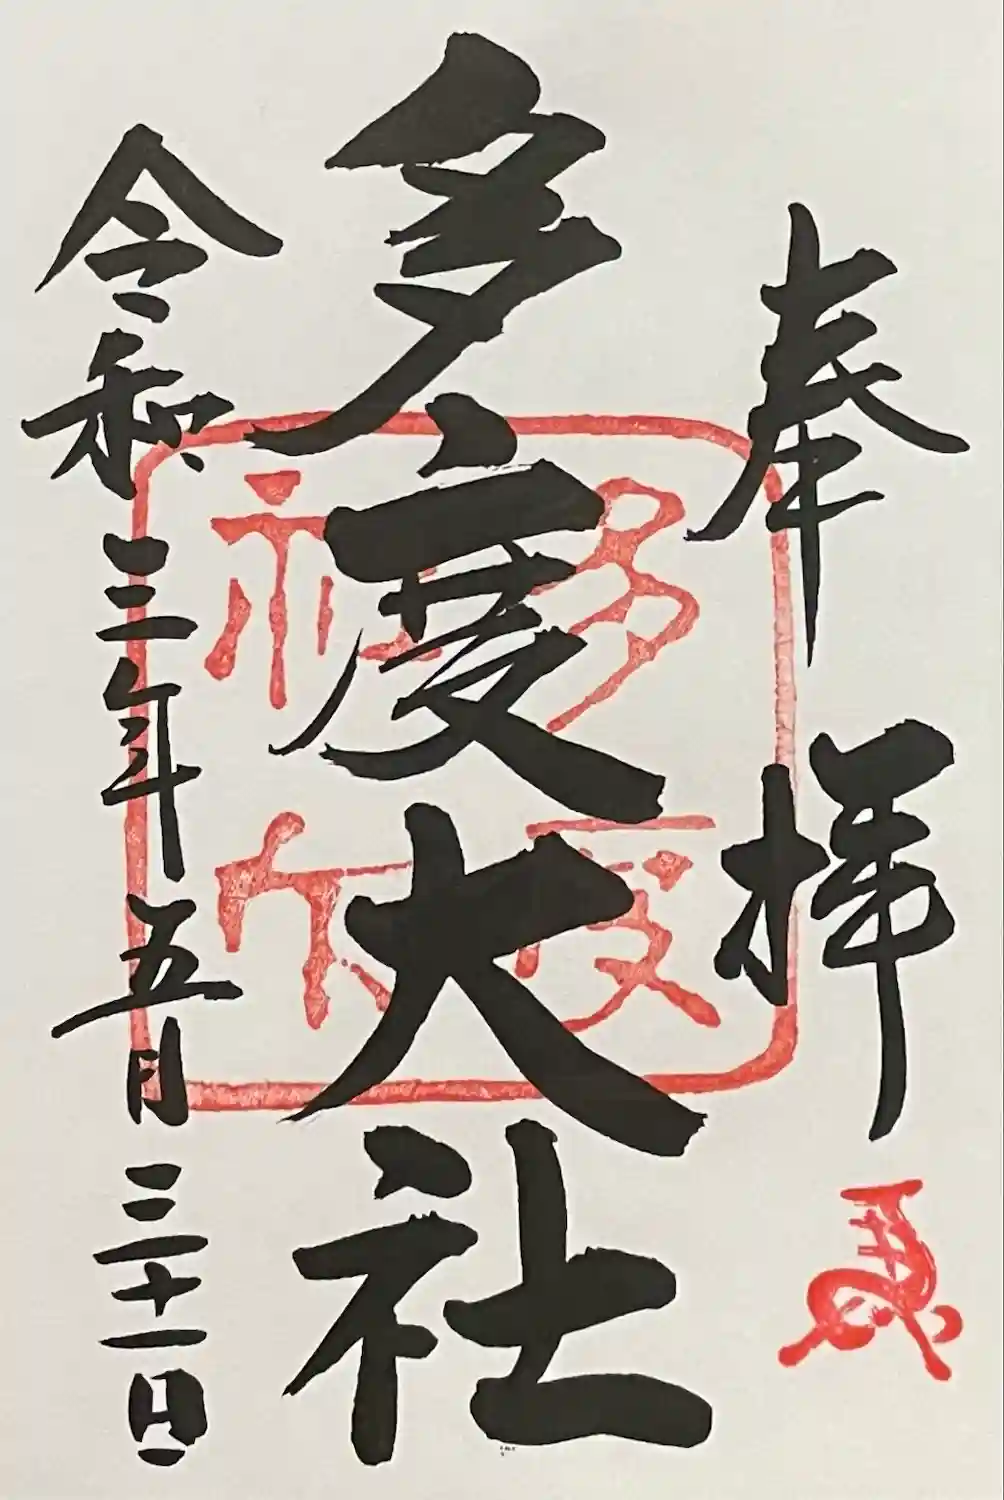 奉拝
多度大社
多度
神社
令和三年五月三十一日